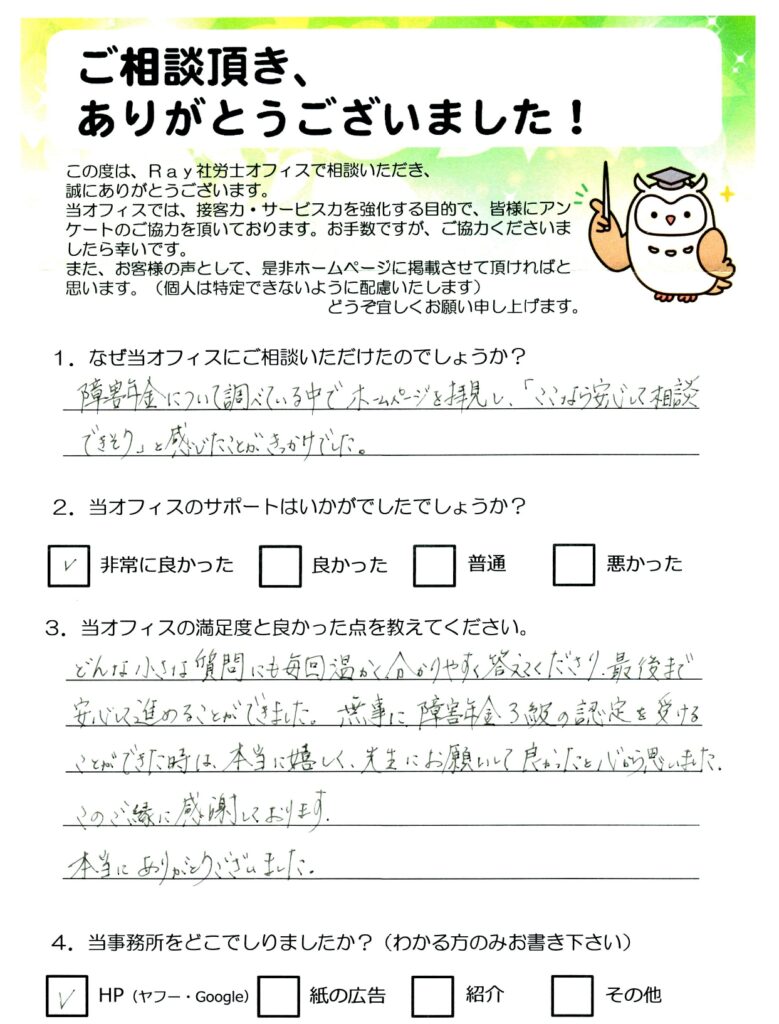 ご相談頂き、
ありがとうございました！
この度は、Ｒａｙ社労士オフィスで相談いただき、
誠にありがとうございます。
当オフィスでは、接客力・サービス力を強化する目的で、皆様にアン
ケートのご協力を頂いております。お手数ですが、ご協力くださいま
したら幸いです。
また、お客様の声として、是非ホームページに掲載させて頂ければと
思います。（個人は特定できないように配慮いたします）
どうぞ宜しくお願い申し上げます。
１．なぜ当オフィスにご相談いただけたのでしょうか？
障害年金について調べている中でホームページを拝見し、「ここなら安心して相談
できそう」と感じたことがきっかけでした。
２．当オフィスのサポートはいかがでしたでしょうか？
✓ 非常に良かった 良かった 普通 悪かった
３．当オフィスの満足度と良かった点を教えてください。
どんな小さな質問にも毎回温かく分かりやすく答えてくださり、最後まで
安心して進めることができました。無事に、障害年金３級の認定を受ける
ことができた時は、本当に嬉しく、先生にお願いして良かったと心から思いました。
このご縁に感謝しております。
本当にありがとうございました。
４．当事務所をどこでしりましたか？（わかる方のみお書き下さい）
✓ HP（ヤフー・Google） 紙の広告 紹介 その他